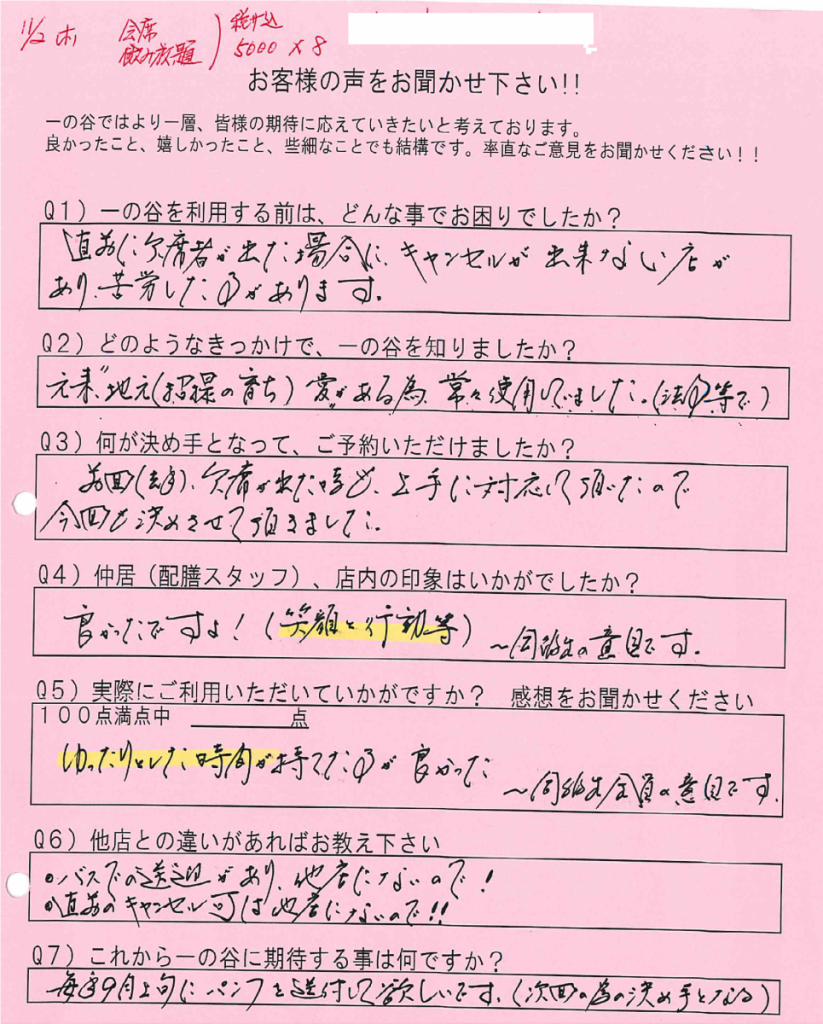 11/2 ホ 会席 飲み放題 ) 税サ込 5000×8
お客様の声をお聞かせ下さい!!
一の谷ではより一層、皆様の期待に応えていきたいと考えております。
良かったこと、嬉しかったこと、些細なことでも結構です。率直なご意見をお聞かせください!!
Q1)一の谷を利用する前は、どんな事でお困りでしたか?
直前に欠席者が出た場合に、キャンセルが出来ない店が
あり、苦労した事があります。
Q2)どのようなきっかけで、一の谷を知りましたか?
元来"地元(の育ち)愛"がある為、常々使用していました。(法事等で)
Q3)何が決め手となって、ご予約いただけましたか?
前回(法事)、欠席が出た時も、上手に対応して頂いたので
今回も決めさせて頂きました。
Q4)仲居(配膳スタッフ)、店内の印象はいかがでしたか?
良かったですよ!(笑顔と行動等)~同級生の意見です。
Q5)実際にご利用いただいていかがですか? 感想をお聞かせください
100点満点中 点
ゆったりとした時間が持てた事が良かった
~同級生全員の意見です。
Q6)他店との違いがあればお教え下さい
○バスでの送迎があり、他店にないので!
○直前のキャンセル可は他店にないので!!
Q7)これから一の谷に期待する事は何ですか?
毎年9月上旬にパンフを送付して欲しいです。(次回の為の決め手となる)